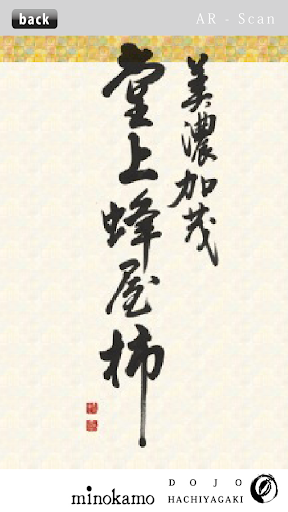 back
AR - Scan
美濃加茂
堂上蜂屋柿
minokamo
DOJO
HACHIYAGAKI